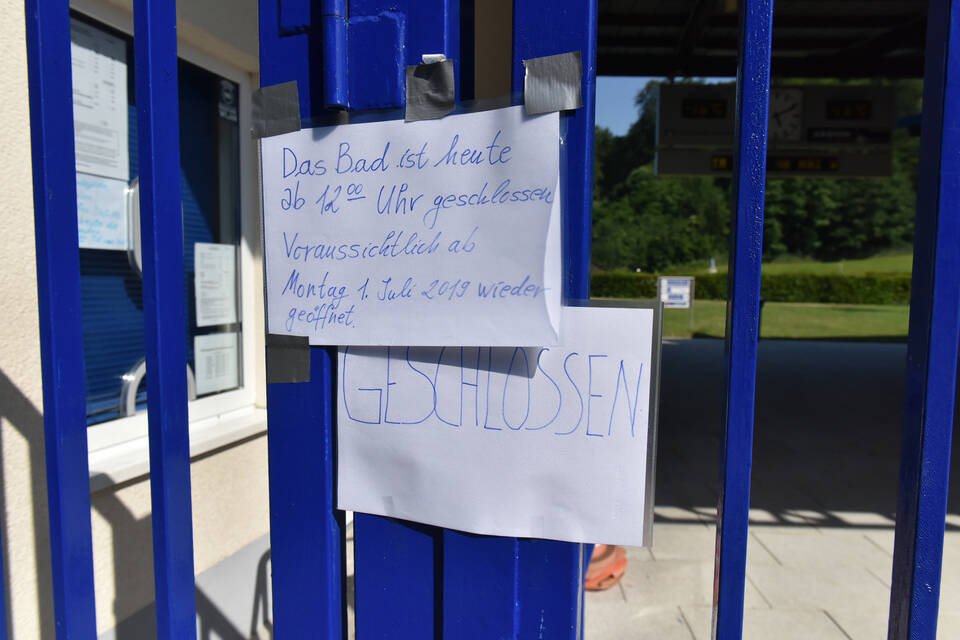 Das Bad ist heute
ab 12⁰⁰ Uhr geschlossen
Voraussichtlich ab
Montag 1. Juli 2019 wieder
geöffnet.
GESCHLOSSEN